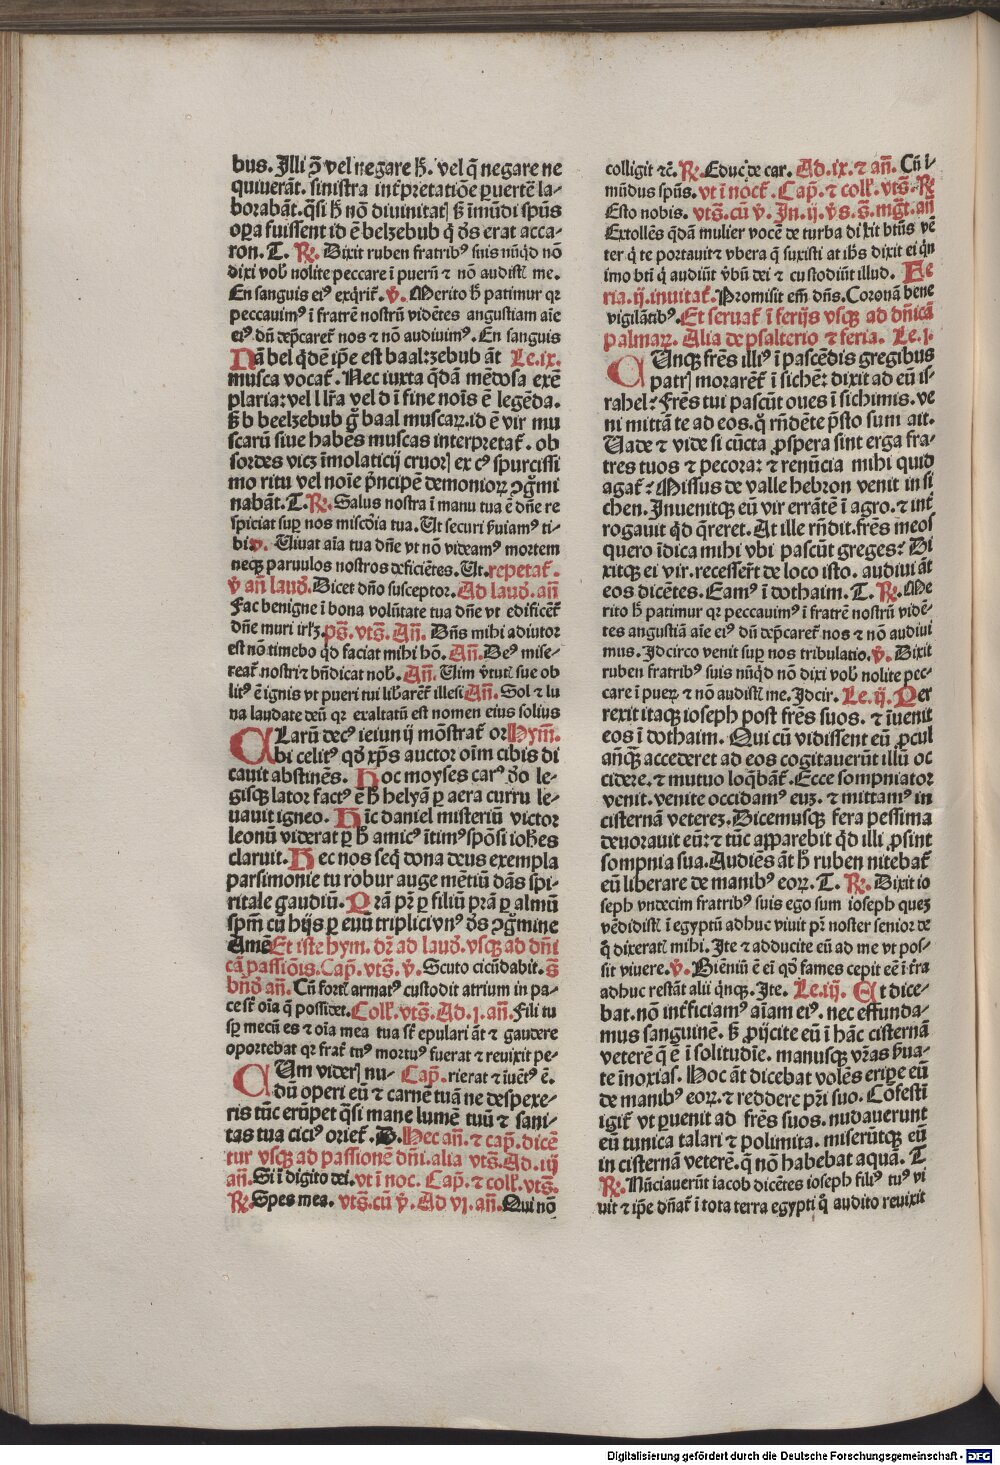 bus. Illi ꝯ̃ vel negare h̃. vel q̃ negare ne
quiuerãt. sinistra int͛pretatiõe ꝑuertẽ la-
borabãt. q̃si h̃ nõ diuinitatꝭ sꝫ ĩmũdi spũs
oꝑa fuissent id ẽ belzebub q̃ dñs erat acca-
ron. T. R̷. Dixit ruben fratribꝰ suis nũqͥd nõ
dixi vobꝭ nolite peccare ĩ puerũ ⁊ nõ audistꝭ me.
En sanguis eiꝰ exqͥrit͛. v̷. Merito h̃ patimur qꝛ
peccauimꝰ ĩ fratrẽ nostrũ vidẽtes angustiam aĩe
eiꝰ dũ dep̃caret͛ nos ⁊ nõ audiuimꝰ. En sanguis
Nã bel qͥdẽ ip̃e est baal: zebub aũt Le.ix.
musca vocat͛. Nec iuxta q̃dã mẽdosa exẽ
plaria: vel l lr̃a vel d ĩ fine noĩs ẽ legẽda.
sꝫ b beelzebub g̃ baal muscaꝝ. id ẽ vir mu
scarũ siue habẽs muscas interpretat͛. ob
sordes vicꝫ ĩmolaticij cruorꝭ ex cꝰ spurcissi
mo ritu vel noĩe p̃ncipẽ demonioꝝ ꝯg̃mi
nabãt. T. R̷. Salus nostra ĩ manu tua ẽ dñe re
spiciat suꝑ nos mĩscd̃ia tua. Ut securi s̃uiamꝰ ti-
bi. v̷. Uiuat aĩa tua dñe vt nõ videamꝰ mortem
neqꝫ paruulos nostros deficiẽtes. Ut. repetat͛.
v̷ añ laud̃. Dicet dño susceptor. Ad laud̃. añ
Fac benigne ĩ bona volũtate tua dñe vt edificẽt͛
dñe muri irl̃ꝫ. ps̃. vts̃. Añ. Dñs mihi adiutor
est nõ timebo qͥd faciat mihi hõ. Añ. Deꝰ mise-
reat͛ nostri ⁊ bñdicat nobꝭ. Añ. Uim v̷tutꝭ sue ob
litꝰ ẽ ignis vt pueri tui lib̃arẽt͛ illesi Añ. Sol ⁊ lu
na laudate deũ qꝛ exaltatũ est nomen eius solius
CLarũ decꝰ ieiunij mõstrat͛ or Hym̃.
bi celitꝰ qd̃ xp̃s auctor oĩm cibis di
cauit abstinẽs. Hoc moyses carꝰ deo le-
gisqꝫ lator factꝰ ẽ h̃ helyã ꝑ aera curru le-
uauit igneo. Hĩc daniel misteriũ victor
leonũ viderat ꝑ h̃ amicꝰ ĩtimꝰ spõsi ioh̃es
claruit. Hec nos seqͥ dona deus exempla
parsimonie tu robur auge mẽtiũ dãs spi-
ritale gaudiũ. Prã pr̃ ꝑ filiũ prã ꝑ almũ
spm̃ cũ hijs ꝑ euũ triplici vnꝰ ds̃ ꝯg̃mine
Amẽ Et iste hym. dr̃ ad laud̃. vsqꝫ ad dñi
cã passiõis. Cap̃. vts̃. v̷. Scuto cicũdabit. s̃
bñd̃ añ. Cũ fortꝭ armatꝰ custodit atrium in pa-
ce sĩt oĩa q̃ possidet. Coll͛. vts̃. Ad.j.añ. Fili tu
sp̃ mecũ es ⁊ oĩa mea tua sĩt epulari aũt ⁊ gaudere
oportebat qꝛ frat͛ tuꝰ mortuꝰ fuerat ⁊ reuixit pe-
CUm viderꝭ nu- Cap̃. rierat ⁊ ĩuẽtꝰ ẽ.
dũ operi eũ ⁊ carnẽ tuã ne despexe-
ris tũc erũpet q̃si mane lumẽ tuũ ⁊ sani-
tas tua ciciꝰ oriet͛. D. Hec añ. ⁊ cap̃. dicẽ
tur vsqꝫ ad passionẽ dñi. alia vts̃. Ad.iij
añ. Si ĩ digito dei. vt ĩ noc. Cap̃. ⁊ coll͛. vts̃.
R̷. Spes mea. vts̃. cũ v̷. Ad vj. añ. Qui nõ
colligit ⁊c̃. R̷. Educ de car. Ad.ix. ⁊ añ. Cũ ĩ-
mũdus spũs. vt ĩ noct͛. Cap̃. ⁊ coll͛. vts̃. R̷
Esto nobis. vts̃. cũ v̷. In.ij.v̷s. s̃. mg̃t. añ
Extollẽs q̃dã mulier vocẽ de turba dixit btũs vẽ
ter qͥ te portauit ⁊ vbera q̃ suxisti at ih̃s dixit ei qͥn
imo bti qͥ audiũt v̷bũ dei ⁊ custodiũt illud. Fe
ria.ij. inuitat͛. Promisit em̃ dñs. Coronã bene
vigilãtibꝰ. Et seruat͛ ĩ ferijs vsqꝫ ad dñicã
palmaꝝ. Alia de psalterio ⁊ feria. Le.j.
CUnqꝫ frẽs illiꝰ ĩ pascẽdis gregibus
patrꝭ morarẽt͛ ĩ sichẽ: dixit ad eũ is-
rahel: Frẽs tui pascũt oues ĩ sichimis. ve
ni mittã te ad eos. qͦ rñdẽte p̃sto sum ait.
Uade ⁊ vide si cũcta ꝓspera sint erga fra-
tres tuos ⁊ pecora: ⁊ renũcia mihi quid
agat͛: Missus de valle hebron venit in si
chen. Inuenitqꝫ eũ vir errãtẽ ĩ agro. ⁊ int͛
rogauit qͥd q̃reret. At ille rñdit. frẽs meos
quero ĩdica mihi vbi pascũt greges: Di
xitqꝫ ei vir. recesserũt de loco isto. audiui aũt
eos dicẽtes. Eamꝰ ĩ dothaim. T. R̷. Me
rito h̃ patimur qꝛ peccauimꝰ ĩ fratrẽ nostrũ vidẽ-
tes angustiã aĩe eiꝰ dũ dep̃caret͛ nos ⁊ nõ audiui
mus. Idcirco venit suꝑ nos tribulatio. v̷. Dixit
ruben fratribꝰ suis nũqͥd nõ dixi vobꝭ nolite pec-
care ĩ pueꝝ ⁊ nõ audistꝭ me. Idcir. Le.ij. Per
rexit itaqꝫ ioseph post frẽs suos. ⁊ ĩuenit
eos ĩ dothaim. Qui cũ vidissent eũ ꝓcul
añqꝫ accederet ad eos cogitauerũt illũ oc
cidere. ⁊ mutuo loq̃bãt͛. Ecce sompniator
venit. venite occidamꝰ eũ. ⁊ mittamꝰ in
cisternã veterẽ. Dicemusqꝫ fera pessima
deuorauit eũ: ⁊ tũc apparebit qͥd illi ꝓsint
sompnia sua. Audiẽs aũt h̃ ruben nitebat͛
eũ liberare de manibꝰ eoꝝ. T. R̷. Dixit io
seph vndecim fratribꝰ suis ego sum ioseph quẽ
vẽdidistꝭ ĩ egyptũ adhuc viuit pr̃ noster senior de
qͦ dixeratꝭ mihi. Ite ⁊ adducite eũ ad me vt pos-
sit viuere. v̷. Bienniũ ẽ eĩ qd̃ fames cepit eẽ ĩ t͛ra
adhuc restãt alii qͥnqꝫ. Ite. Le.iij. Et dice-
bat. nõ int͛ficiamꝰ aĩam eiꝰ. nec effunda-
mus sanguinẽ. sꝫ ꝓijcite eũ ĩ hãc cisternã
veterẽ q̃ ẽ ĩ solitudĩe. manusqꝫ vr̃as s̃ua-
te ĩnoxias. Hoc aũt dicebat volẽs eriꝑe eũ
de manibꝰ eoꝝ. ⁊ reddere pr̃i suo. Cõfestĩ
igit͛ vt ꝑuenit ad frẽs suos. nudauerunt
eũ tunica talari ⁊ polimita. miserũtqꝫ eũ
in cisternã veterẽ. q̃ nõ habebat aquã. T
R̷. Nũciauerũt iacob dicẽtes ioseph filiꝰ tuꝰ vi
uit ⁊ ip̃e dñat͛ ĩ tota terra egypti qͦ audito reuixit
Digitalisierung gefördert durch die Deutsche Forschungsgemeinschaft - DFG